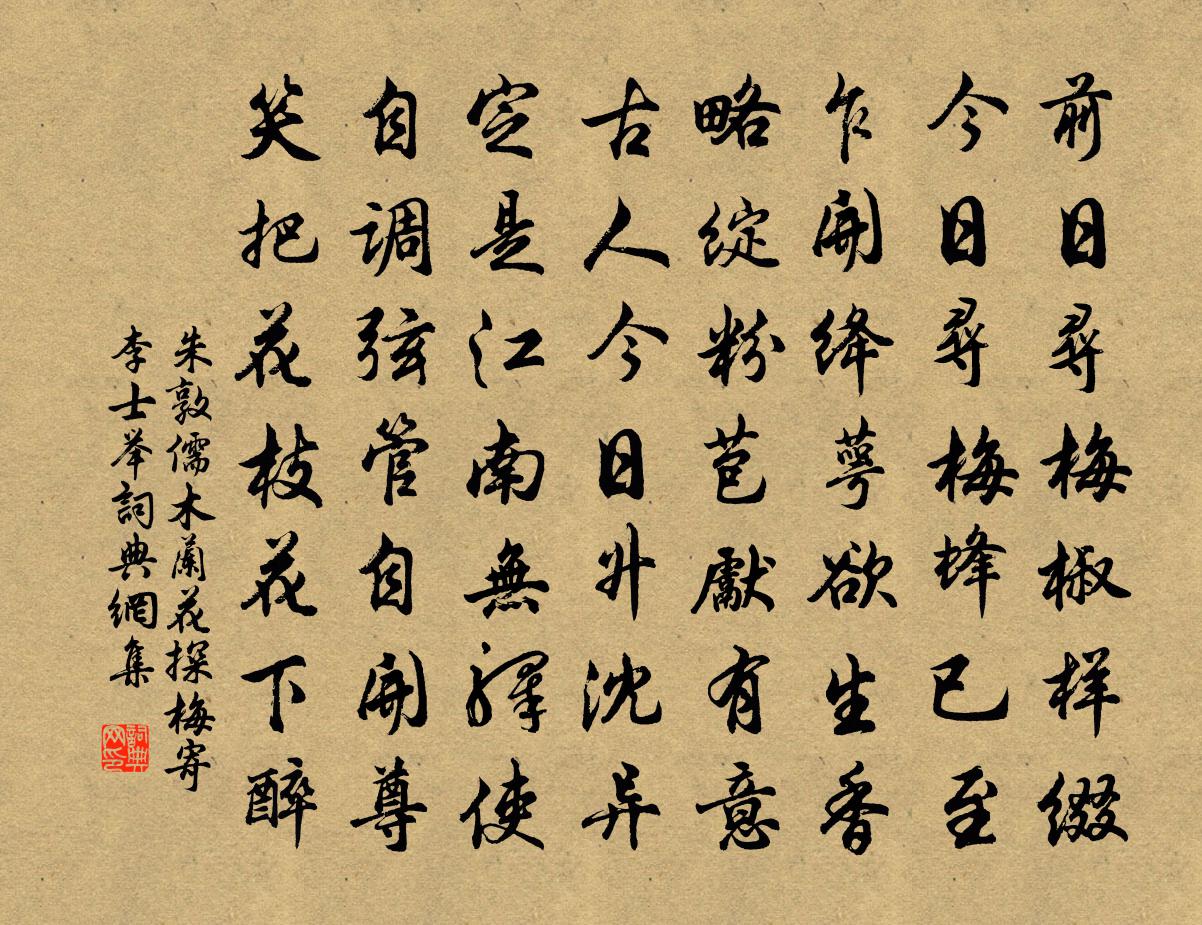 前日尋梅椒样缀
今日尋梅蜂已至
乍開绛萼欲生香
略绽粉苞獻有意
古人今日升沈异
定是江南無驛使
自调弦管自開尊
笑把花枝花下醉
朱敦儒木蘭花探梅寄
李士举詞典網集
詞典
网印